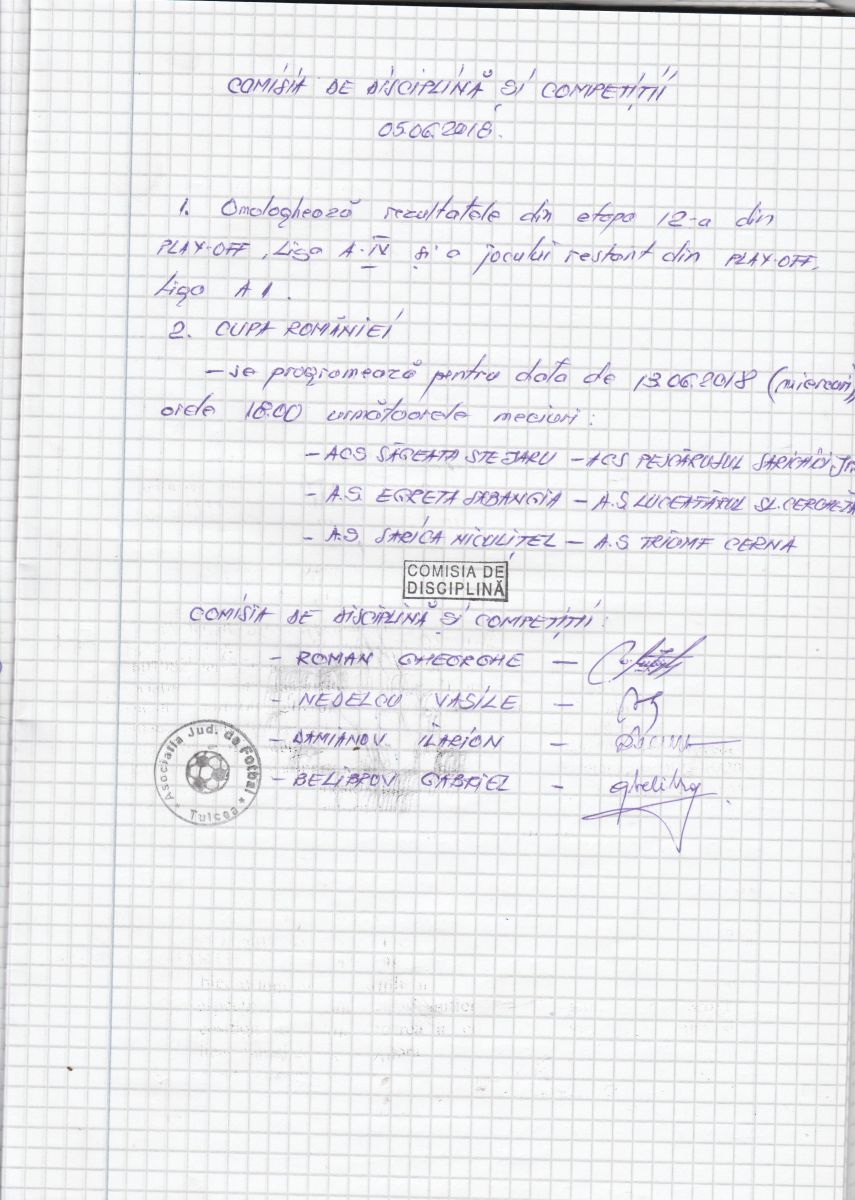 COMISIA DE DISCIPLINĂ ȘI COMPETIȚII
05.06.2018.
1. Omologhează rezultatele din etapa 12-a din
PLAY-OFF, Liga A-IV și a jocului restant din PLAY-OFF,
Liga A1.
2. CUPA ROMÂNIEI
- se programează pentru data de 13.06.2018 (miercuri),
orele 18.00 următoarele meciuri:
- ACS SĂGEATA STEJARU - ACS PESCĂRUȘUL
- A.S. EGRETA SABANGIA - A.S. LUCEAFĂRUL SL.CERCHEZĂ
- A.S. SARICA NICULIȚEL - A.S TRIUMF CERNA
COMISIA DE
DISCIPLINĂ
COMISIA DE DISCIPLINĂ ȘI COMPETIȚII:
- ROMAN GHEORGHE -
- NEDELCU VASILE -
- DAMIANOV ILARION -
- BELIBROV GABRIEL -
Asociatia Jud. de Fotbal
* Tulcea *